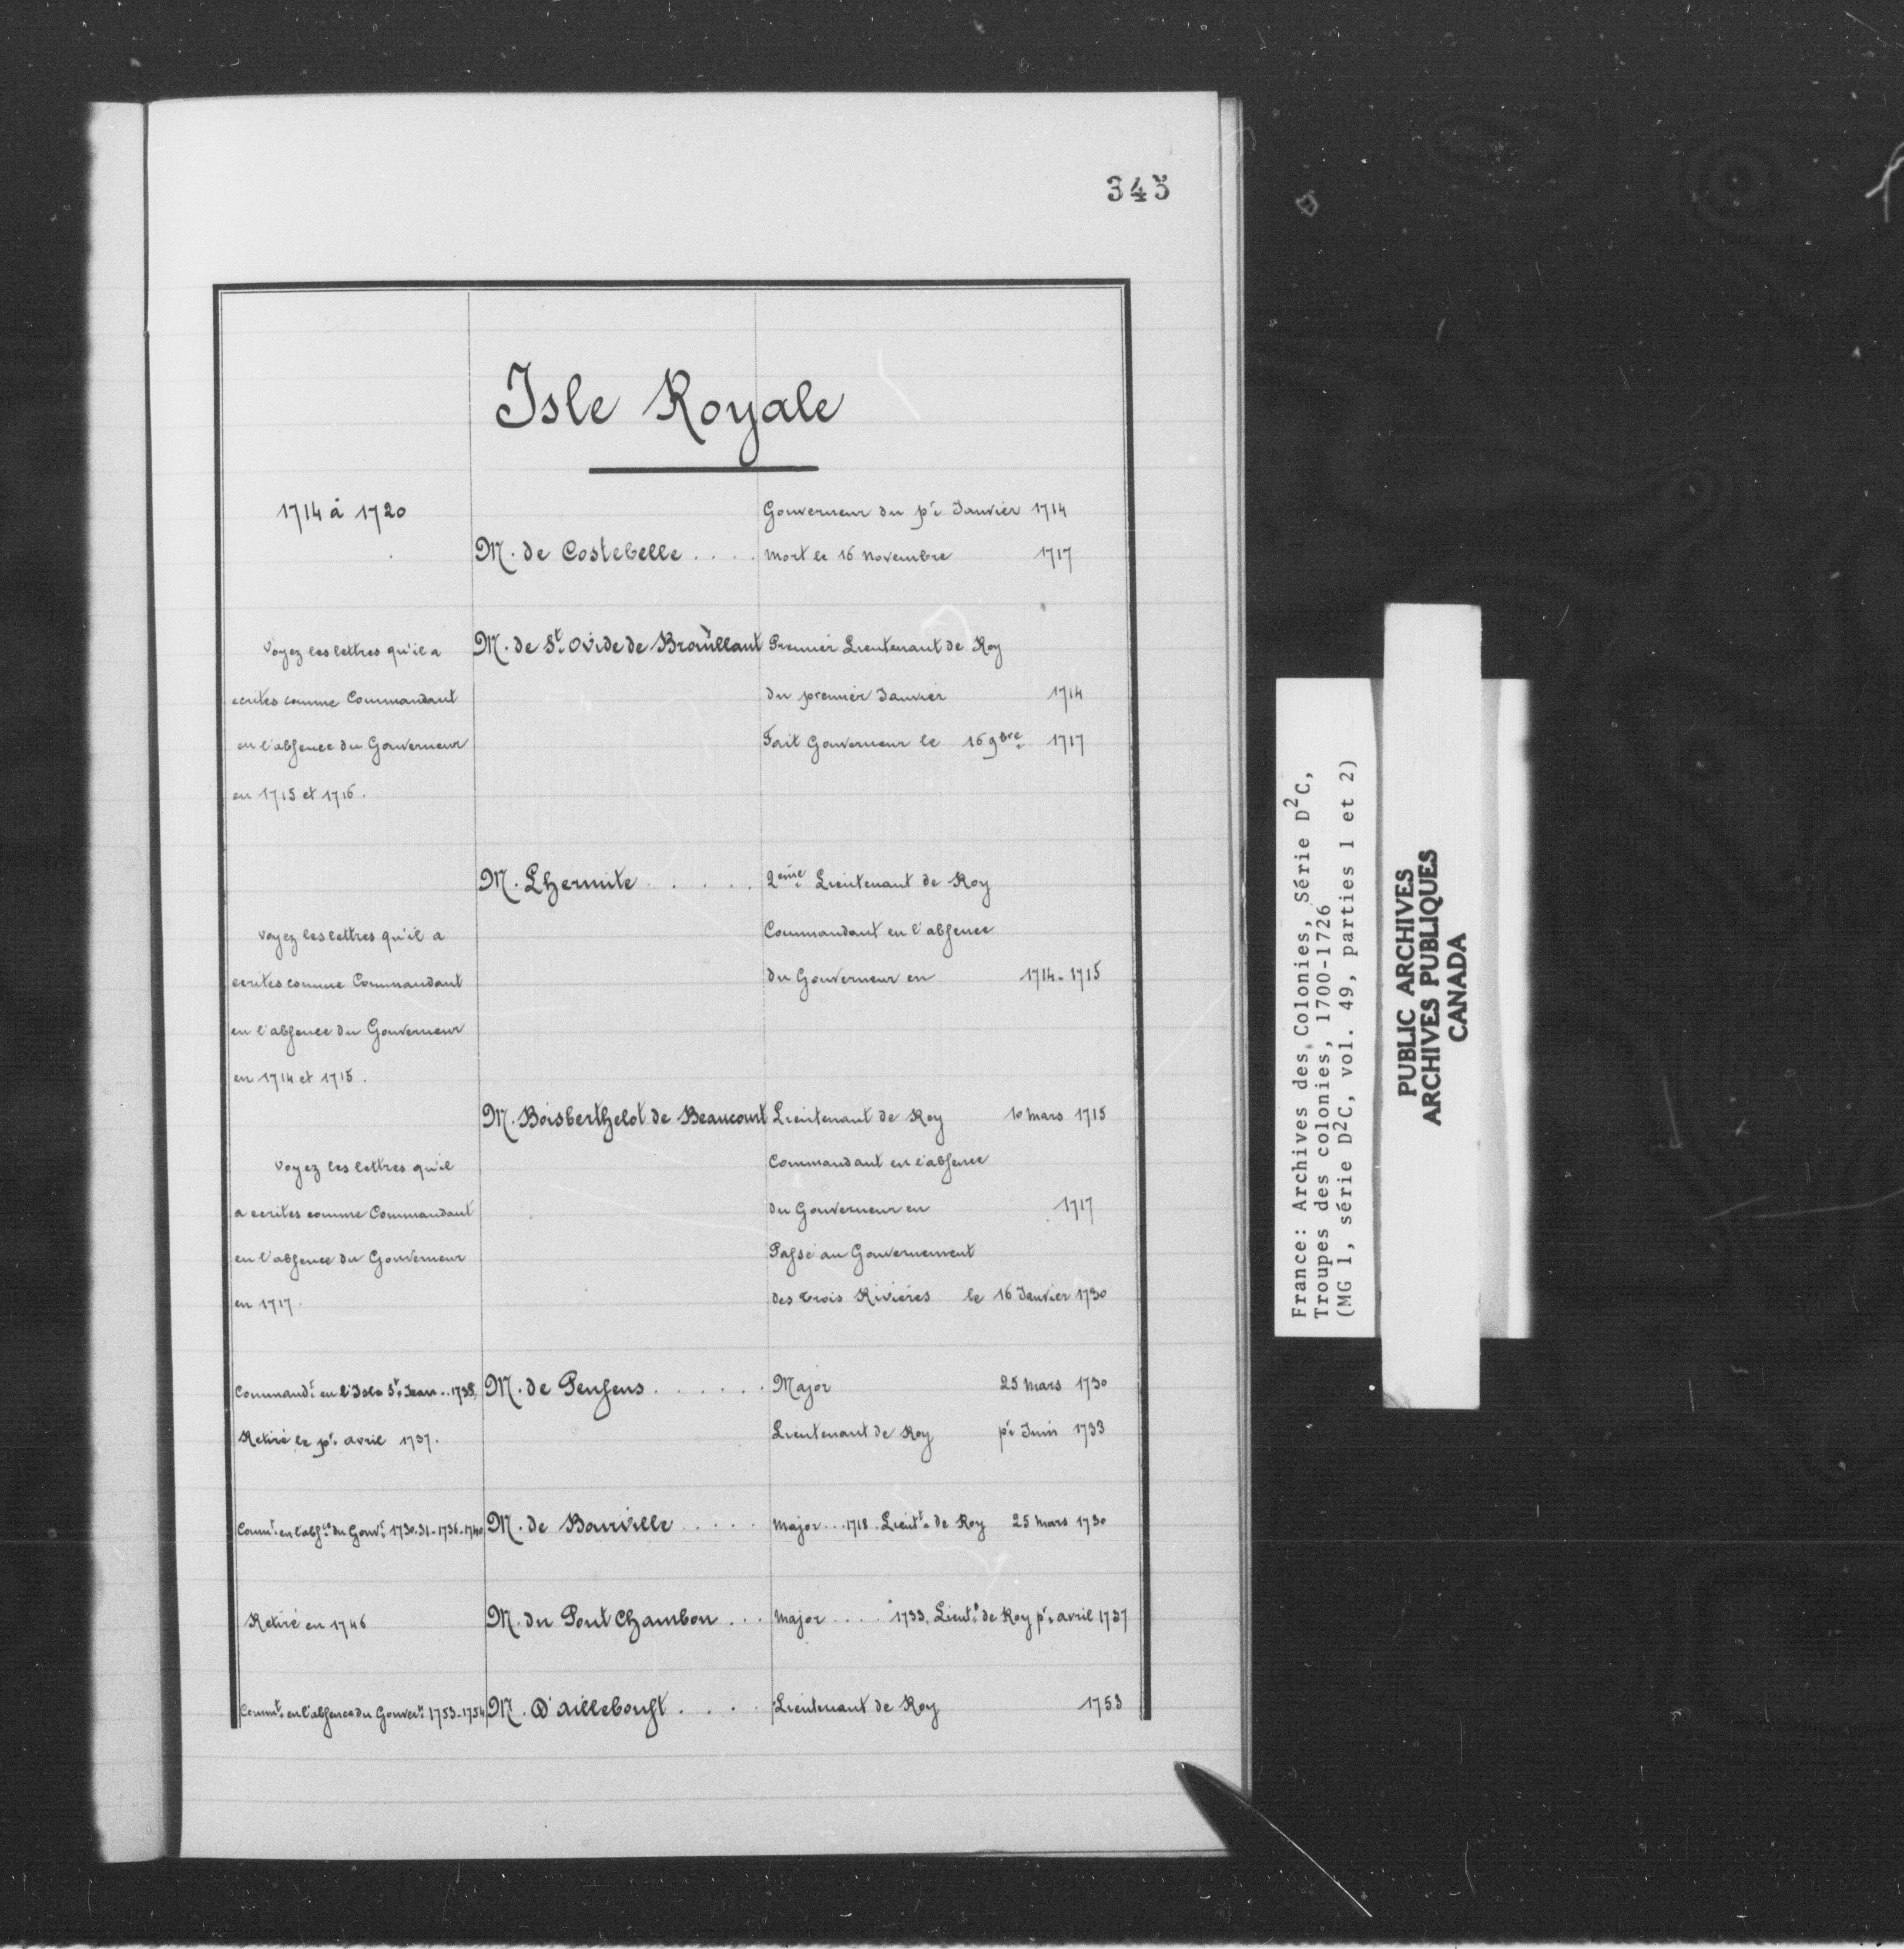 345
Isle Royale
1714 à 1720
Gouverneur du pr. Janvier 1714
M. de Costebelle . . . . mort le 16 Novembre 1717
Voyez les lettres qu'il a
ecrites comme Commandant
en l'absence du Gouverneur
en 1715 et 1716.
M. de St. Ovide de Brouillant Premier Lieutenant de Roy
du premier Janvier 1714
Fait Gouverneur le 16 9bre 1717
M. Lhermite . . . . . 2ème Lieutenant de Roy
Commandant en l'absence
du Gouverneur en 1714-1715
Voyez les lettres qu'il a
ecrites comme Commandant
en l'absence du Gouverneur
en 1714 et 1715.
M. Boisberthelot de Beaucourt Lieutenant de Roy 10 mars 1715
Commandant en l'absence
du Gouverneur en 1717
Passé au Gouvernement
des trois Rivières le 16 Janvier 1730
Voyez les lettres qu'il
a ecrites comme Commandant
en l'absence du Gouverneur
en 1717.
Commandt. en l'Isle St. Jean..
Retiré le pr. avril 1737.
M. de Pensens . . . . . . Major 25 mars 1730
Lieutenant de Roy pr. Juin 1733
Commt. en l'absce du Gouvr. 1730.31-1736-1740 M. de Bourville . . . . . Major...1718. Lieutt. de Roy 25 mars 1730
Retiré en 1746 M. du Pont Chambon . . . Major .... 1733. Lieutt. de Roy pr. avril 1737
Commt. en l'absence du Gouverr. 1753-1754 M. D'ailleboust . . . . Lieutenant de Roy 1753
France: Archives des Colonies, Série D²C,
Troupes des colonies, 1700-1726
(MG 1, série D²C, vol. 49, parties 1 et 2)
PUBLIC ARCHIVES
ARCHIVES PUBLIQUES
CANADA